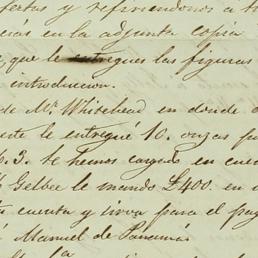 fertas y refiriendonos a t
eiràs en la adjunta copia
e, que le entregues las figuras
introduccion.
de Mr. Whitehead en donde
este le entregué 10. onzas
p. 3. te hemos cargado en cue
Gelbee le mando £400. en
cuenta y sirva para el pag
Manuel de Panamá